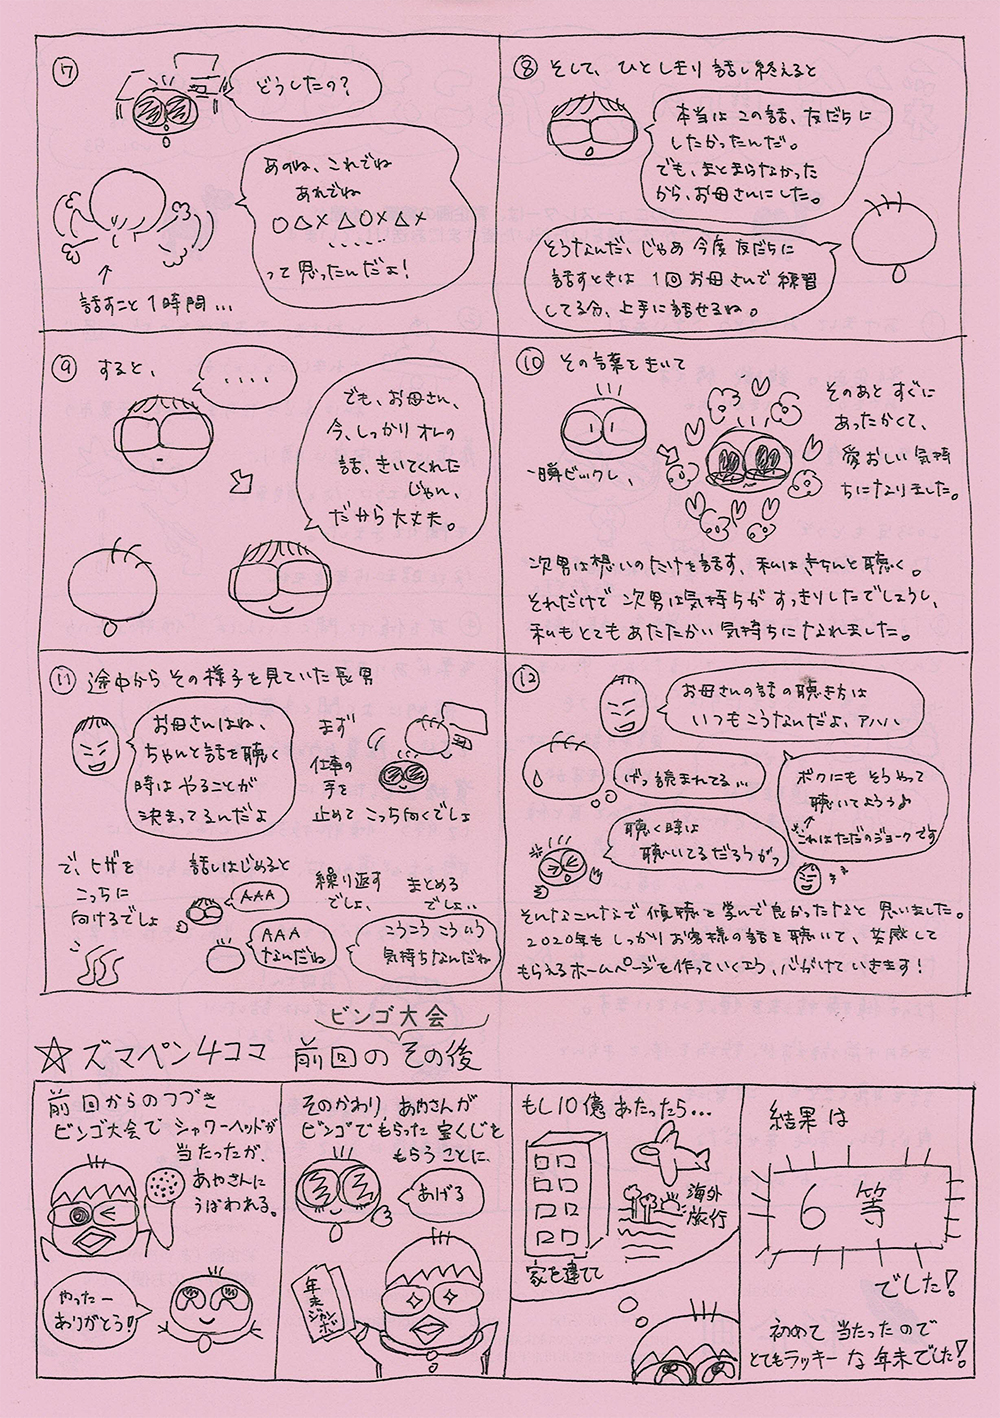 ⑦
どうしたの？
あのね、これでね
あれでね
○△×△○×△×
・・・・・・
って思ったんだよ！
↑
話すこと1時間…
⑧ そして、ひとしきり話し終えると
本当はこの話、友だちに
したかったんだ。
でも、まとまらなかった
から、お母さんにした。
そうなんだ、じゃあ今度友だちに
話すときは 1回お母さんで練習
してる分、上手に話せるね。
⑨ すると、
・・・・
でも、お母さん、
今、しっかりオレの
話、きいてくれた
じゃん、
だから大丈夫。
⑩ その言葉をきいて
一瞬ビックリし、
そのあとすぐに
あったかくて、
愛おしい気持
ちになりました。
次男は想いのたけを話す、私はきちんと聴く。
それだけで次男は気持ちがすっきりしたでしょうし、
私もとてもあたたかい気持ちになれました。
⑪ 途中からその様子を見ていた長男
お母さんはね、
ちゃんと話を聴く
時はやることが
決まってるんだよ
まず
仕事の
手を
止めて こっち向くでしょ
で、ヒザを
こっちに
向けるでしょ
話しはじめると
AAA
AAA
なんだね
繰り返す
でしょ、
まとめる
でしょ…
こうこうこういう
気持ちなんだね
⑫
お母さんの話の聴き方は
いつもこうなんだよ、アハハ
げっ読まれてる…
ボクにもそうやって
聴いてよううぅ
↑
これはただのジョークです
聴く時は
聴いてるだろうがっ
そんなこんなで傾聴を学んで良かったなと思いました。
2020年もしっかりお客様の話を聴いて、共感して
もらえるホームページを作っていくよう、心がけていきます！
ビンゴ大会
☆ズマペン4コマ 前回のその後
前回からのつづき
ビンゴ大会でシャワーヘッドが
当たったが、
あやさんに
うばわれる。
やったー
ありがとう！
そのかわり、あやさんが
ビンゴでもらった宝くじを
もらうことに、
あげる
年末
ジャンボ
もし10億あたったら…
海外
旅行
家を建てて
結果は
6等
でした！
初めて当たったので
とてもラッキーな年末でした！